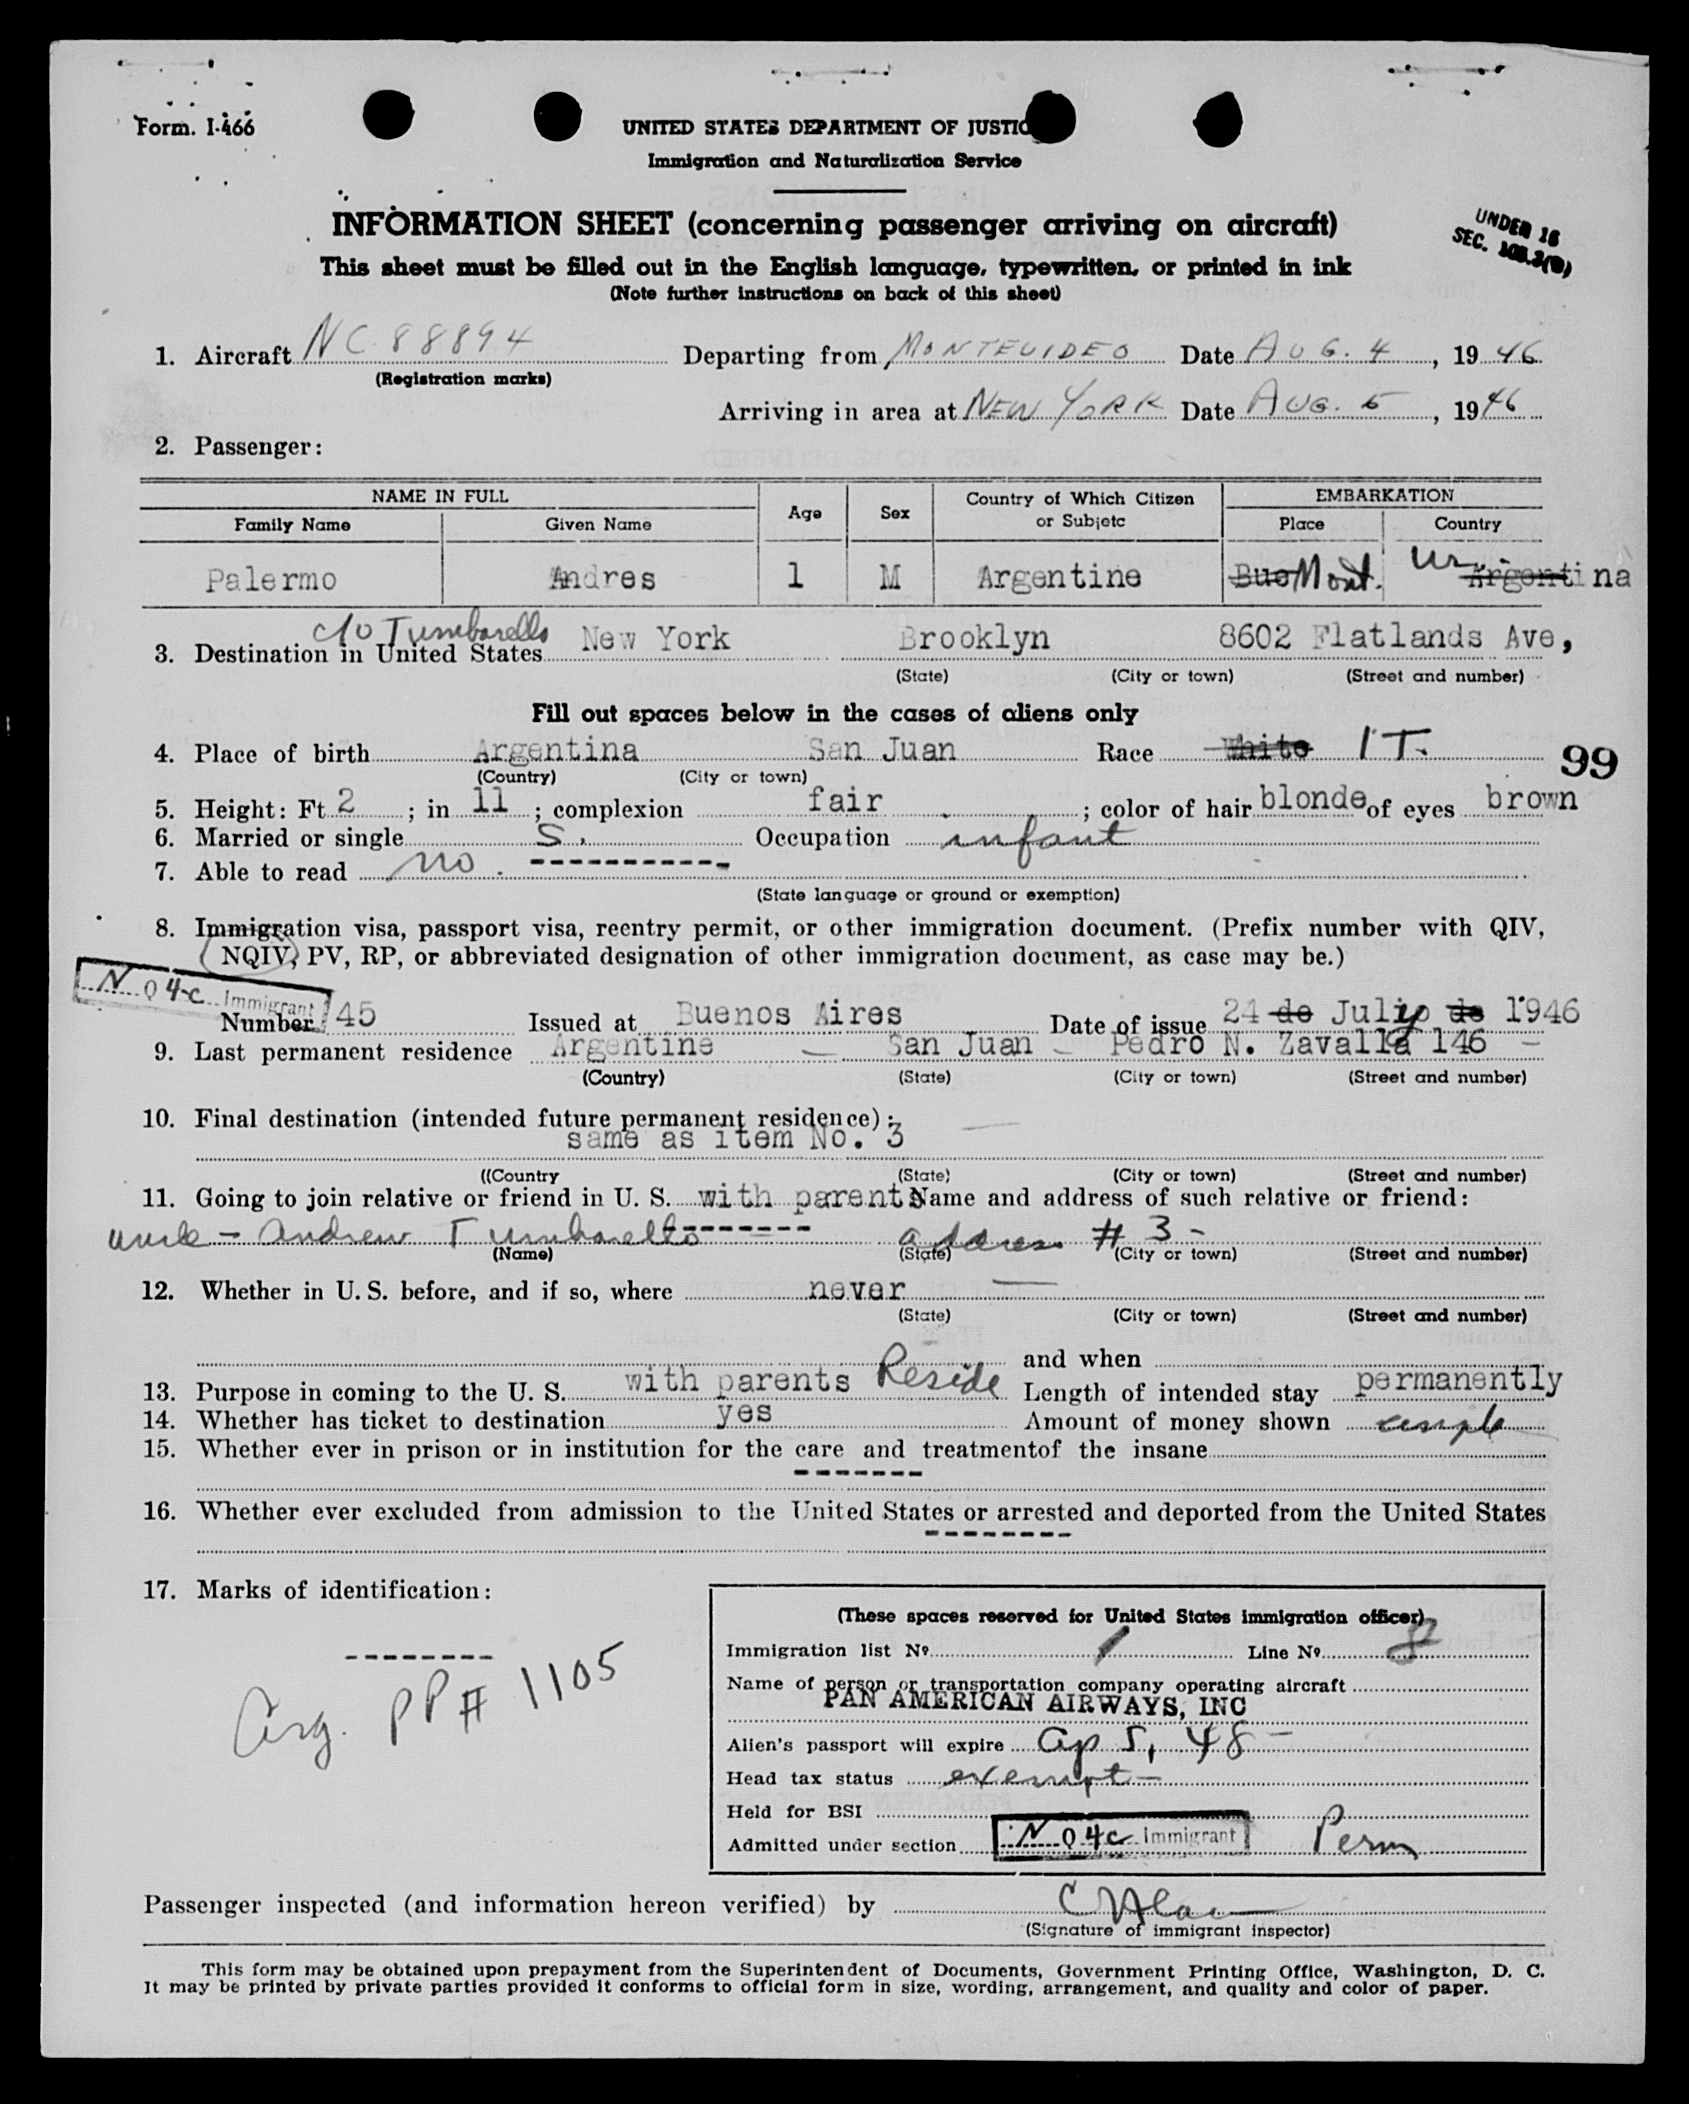 Form. I-466
UNITED STATES DEPARTMENT OF JUSTIC
Immigration and Naturalization Service
INFORMATION SHEET (concerning passenger arriving on aircraft)
UNDER 16
SEC.
This sheet must be filled out in the English language, typewritten, or printed in ink
(Note further instructions on back of this sheet)
1. Aircraft NC 88894 Departing from MONTEVIDEO Date AUG. 4, 1946
(Registration marks)
Arriving in area at NEW YORK Date AUG. 5, 1946
2. Passenger:
NAME IN FULL Age Sex Country of Which Citizen or Subjetc EMBARKATION
Family Name Given Name Place Country
Palermo Andres 1 M Argentine Bue Mont. Ur. Argentina
c/o Tumbarello
3. Destination in United States New York Brooklyn 8602 Flatlands Ave,
(State) (City or town) (Street and number)
Fill out spaces below in the cases of aliens only
4. Place of birth Argentina San Juan Race White IT.
99
(Country) (City or town)
5. Height: Ft 2 ; in 11 ; complexion fair ; color of hair blonde of eyes brown
6. Married or single S. Occupation infant
7. Able to read no. -----------
(State language or ground or exemption)
8. Immigration visa, passport visa, reentry permit, or other immigration document. (Prefix number with QIV,
NQIV, PV, RP, or abbreviated designation of other immigration document, as case may be.)
N Q 4-c Immigrant
Number 45 Issued at Buenos Aires Date of issue 24 de Julio y de 1946
9. Last permanent residence Argentine — San Juan — Pedro N. Zavalla 146 —
(Country) (State) (City or town) (Street and number)
10. Final destination (intended future permanent residence):
same as item No. 3
((Country (State) (City or town) (Street and number)
11. Going to join relative or friend in U. S. with parents Name and address of such relative or friend:
uncle - Andrew Tumbarello -------- address # 3 -
(Name) (State) (City or town) (Street and number)
12. Whether in U. S. before, and if so, where never —
(State) (City or town) (Street and number)
and when
13. Purpose in coming to the U. S. with parents Reside Length of intended stay permanently
14. Whether has ticket to destination yes Amount of money shown
15. Whether ever in prison or in institution for the care and treatmentof the insane
-------
16. Whether ever excluded from admission to the United States or arrested and deported from the United States
--------
17. Marks of identification:
--------
Arg. PP# 1105
(These spaces reserved for United States immigration officer)
Immigration list No. 1 Line No. 8
Name of person or transportation company operating aircraft
PAN AMERICAN AIRWAYS, INC
Alien's passport will expire Ap 5, 48 -
Head tax status exempt -
Held for BSI
Admitted under section N Q 4c Immigrant Perm
Passenger inspected (and information hereon verified) by
(Signature of immigrant inspector)
This form may be obtained upon prepayment from the Superintendent of Documents, Government Printing Office, Washington, D. C.
It may be printed by private parties provided it conforms to official form in size, wording, arrangement, and quality and color of paper.